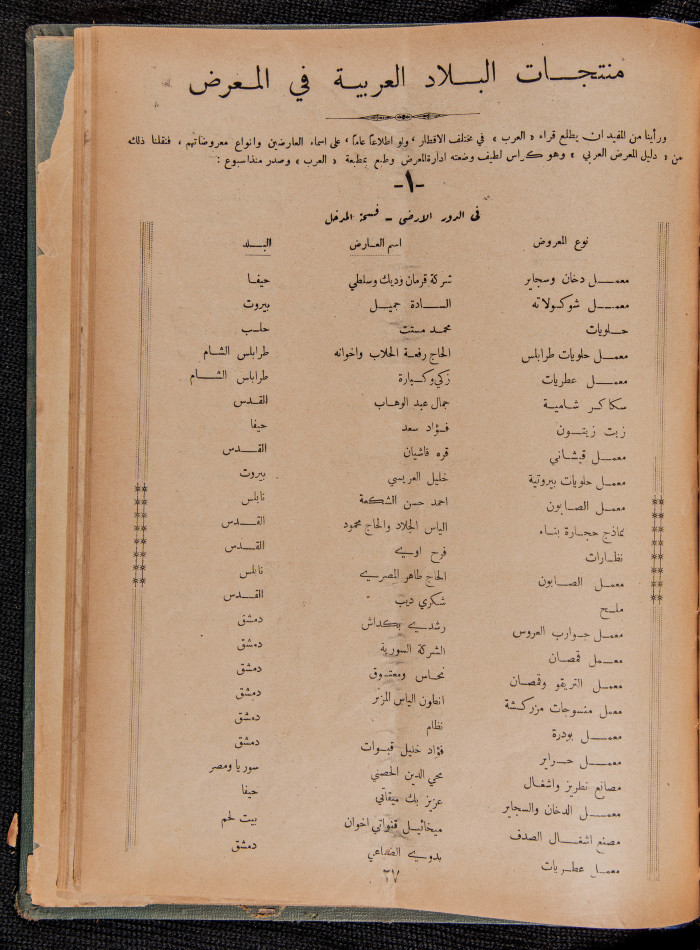 منتجات البلاد العربية في المعرض
ورأينا من المفيد ان يطلع قراء « العرب » في مختلف الاقطار ، ولو اطلاعا عاما ، على اسماء العارضين وانواع معروضاتهم ، فنقلنا ذلك
من « دليل المعرض العربي » وهو كراس لطيف وضعته ادارة المعرض وطبع بمطبعة « العرب » وصدر منذ اسبوع :
-١-
في الدور الارضي - فسحة المدخل
نوع المعروض اسم العارض البلد
معمل دخان وسجاير شركة قرمان وديك وسلطي حيفا
معمل شوكولاته السادة جميل بيروت
حلويات محمد مستت حلب
معمل حلويات طرابلس الحاج رفعة الحلاب واخوانه طرابلس الشام
معمل عطريات زكي وكبارة طرابلس الشام
سكاكر شامية جمال عبد الوهاب القدس
زيت زيتون فؤاد سعد حيفا
معمل قيشاني قره قاشيان القدس
معمل حلويات بيروتية خليل العريسي بيروت
معمل الصابون احمد حسن الشكعة نابلس
نماذج حجارة بناء الياس الجلاد والحاج محمود القدس
نظارات فرح القدس
معمل الصابون الحاج طاهر المصري نابلس
ملح شكري ديب القدس
معمل جوارب العروس رشدي بكداش دمشق
معمل قمصان الشركة السورية دمشق
معمل التريقو وقمصان نحاس ومعتوق دمشق
معمل منسوجات مزركشة انطون الياس المزنر دمشق
معمل بودرة نظام دمشق
معمل حراير فؤاد خليل قبوات دمشق
مصانع تطريز واشغال محي الدين الحصني سوريا ومصر
معمل الدخان والسجاير عزيز بك ميقاتي حيفا
مصنع اشغال الصدف ميخائيل قنواتي اخوان بيت لحم
معمل عطريات بدوي دمشق
٢٧